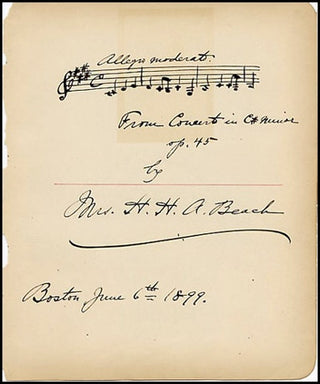 Allegro moderato.
From Concerto in C# minor
op. 45
by
Mrs. H. H. A. Beach
Boston June 6th 1899.